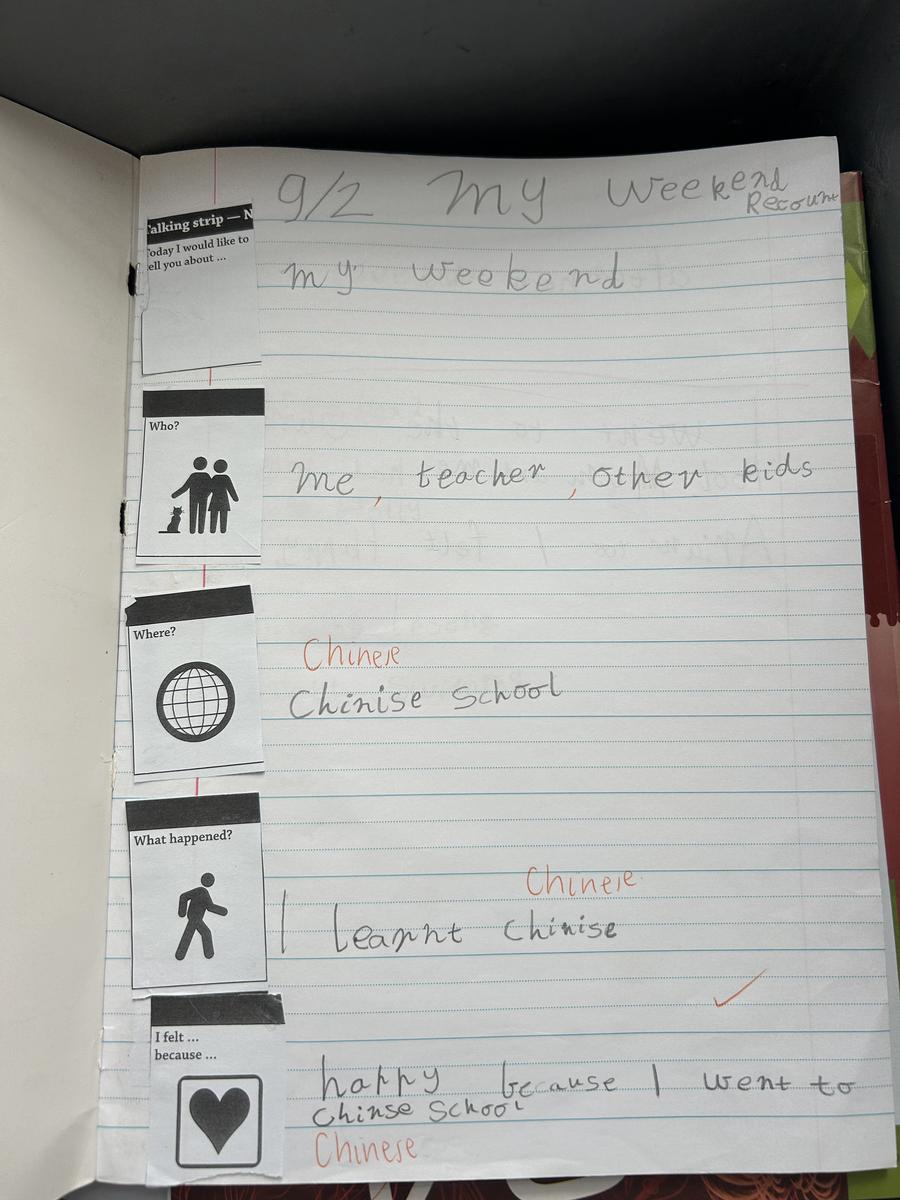 9/2 My Weekend
Recount
Talking strip — N
Today I would like to
tell you about ...
my weekend
Who?
me, teacher, other kids
Where?
Chinese
Chinise School
What happened?
Chinese
I learnt Chinise
I felt ...
because ...
happy because I went to
Chinse School
Chinese